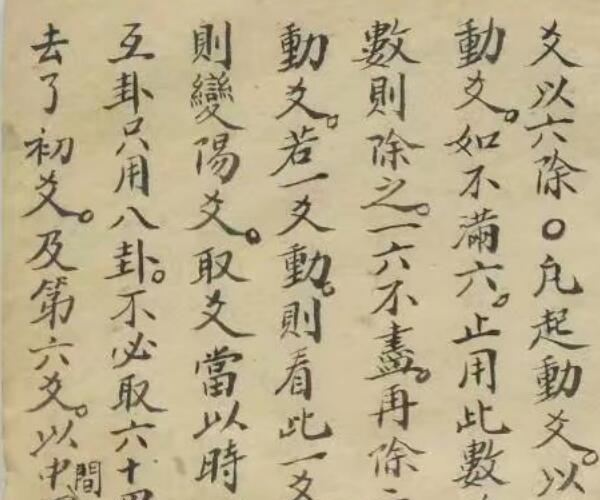 爻以六除○凡起動爻。以
動爻。如不滿六。止用此數
數則除之。一六不盡。再除
動爻。若一爻動。則看此一爻
則變陽爻。取爻當以時
互卦只用八卦。不必取六十四
去了初爻。及第六爻。以中間